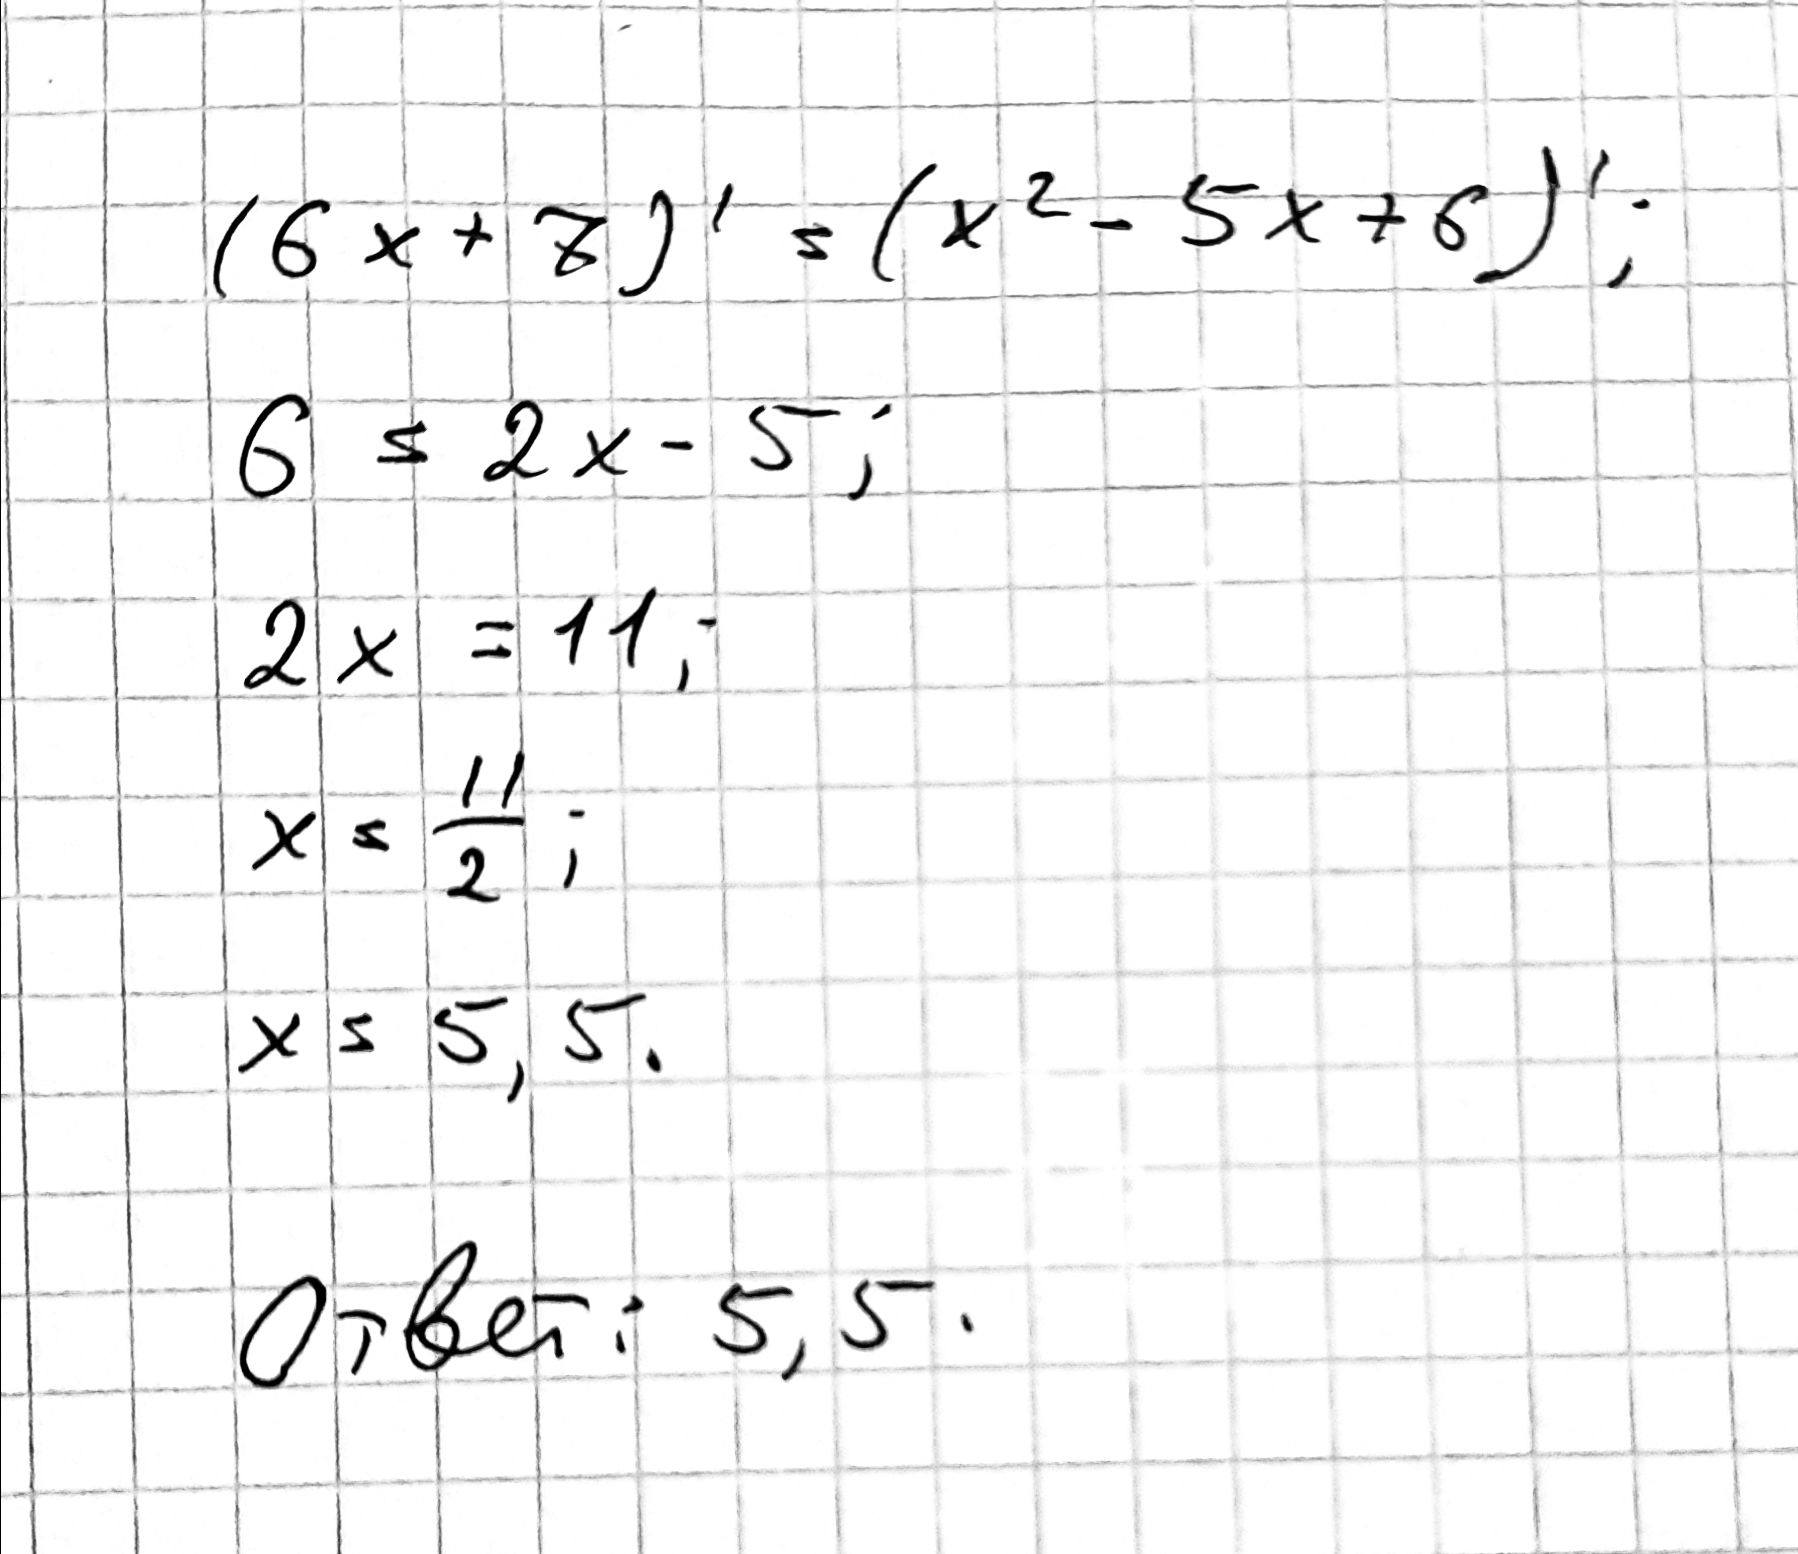 (6x + 7)' = (x² - 5x + 6)';
6 = 2x - 5;
2x = 11;
x = 11/2;
x = 5,5.
Ответ: 5,5.